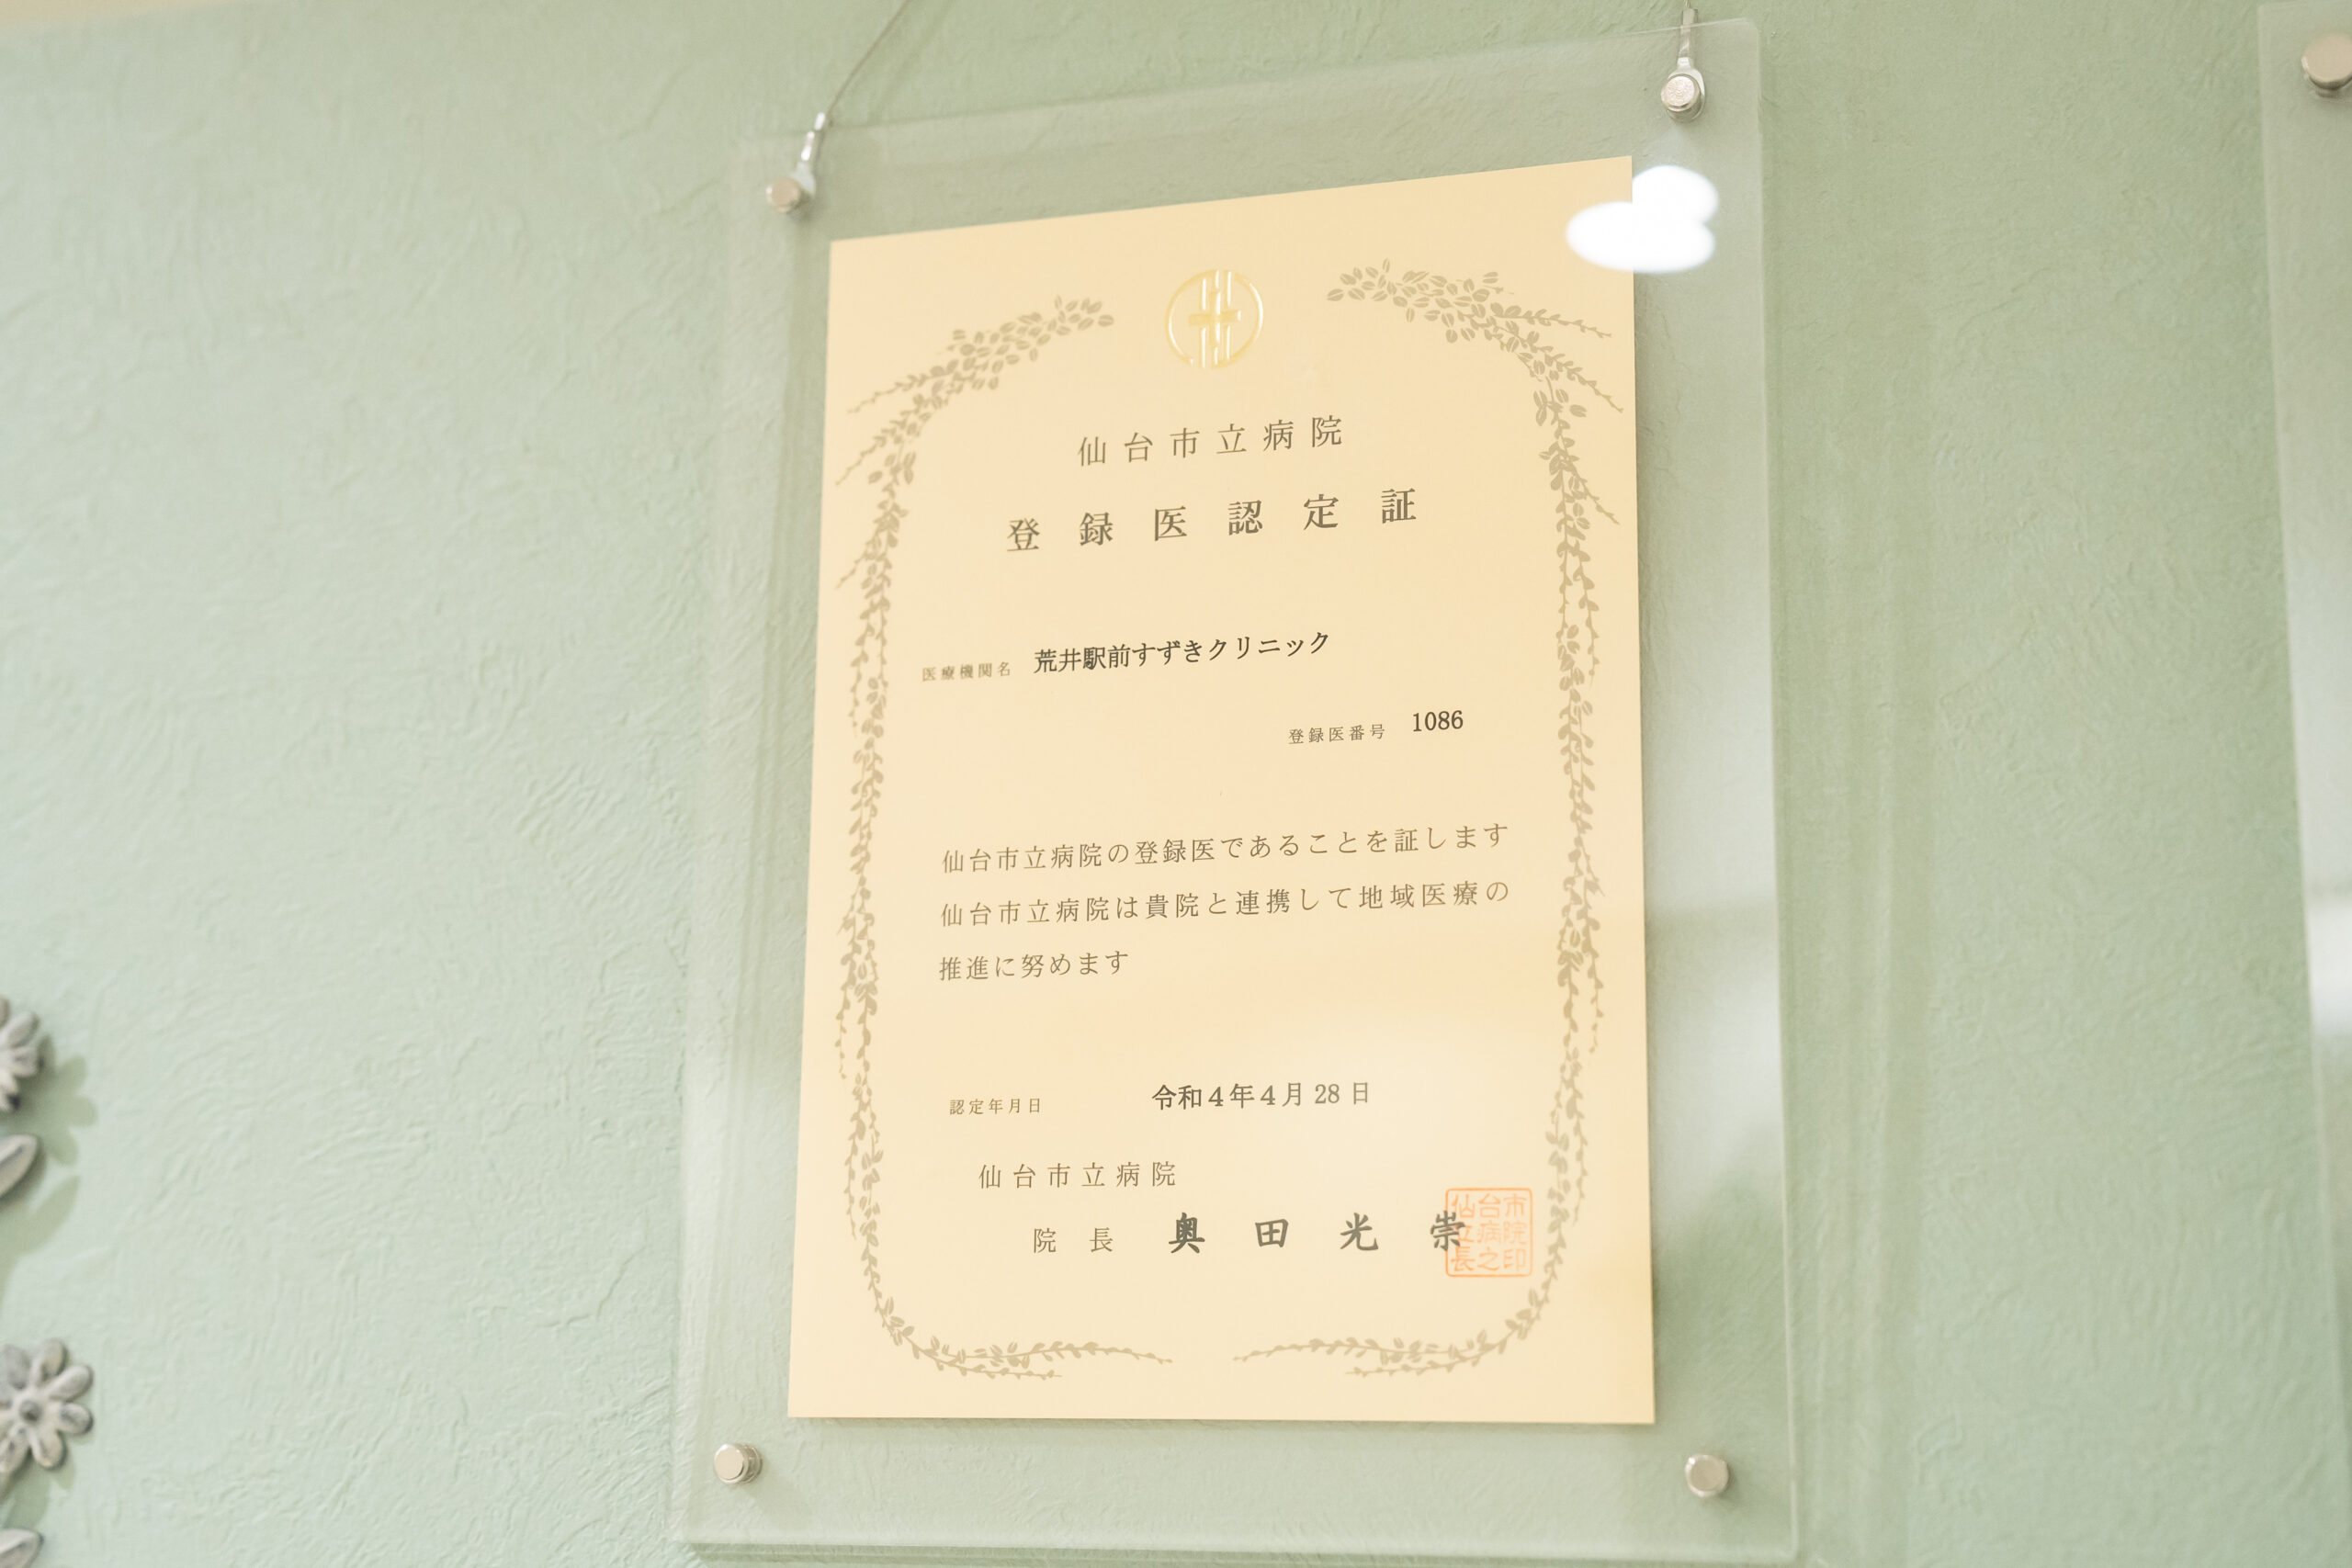 仙台市立病院
登録医認定証
医療機関名 荒井駅前すずきクリニック
登録医番号 1086
仙台市立病院の登録医であることを証します
仙台市立病院は貴院と連携して地域医療の
推進に努めます
認定年月日 令和4年4月28日
仙台市立病院
院長 奥田光崇
仙台市
立病院
長之印